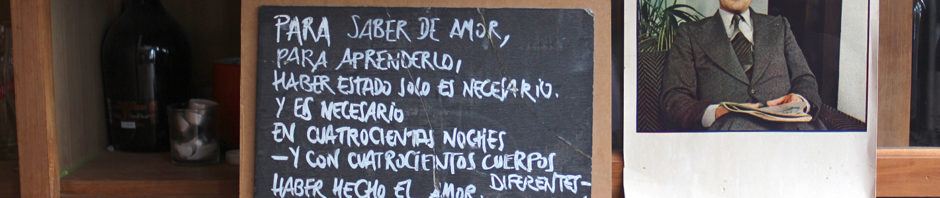 PARA SABER DE AMOR,
PARA APRENDERLO,
HABER ESTADO SOLO ES NECESARIO.
Y ES NECESARIO
EN CUATROCIENTAS NOCHES
—Y CON CUATROCIENTOS CUERPOS
DIFERENTES—
HABER HECHO EL AMOR.